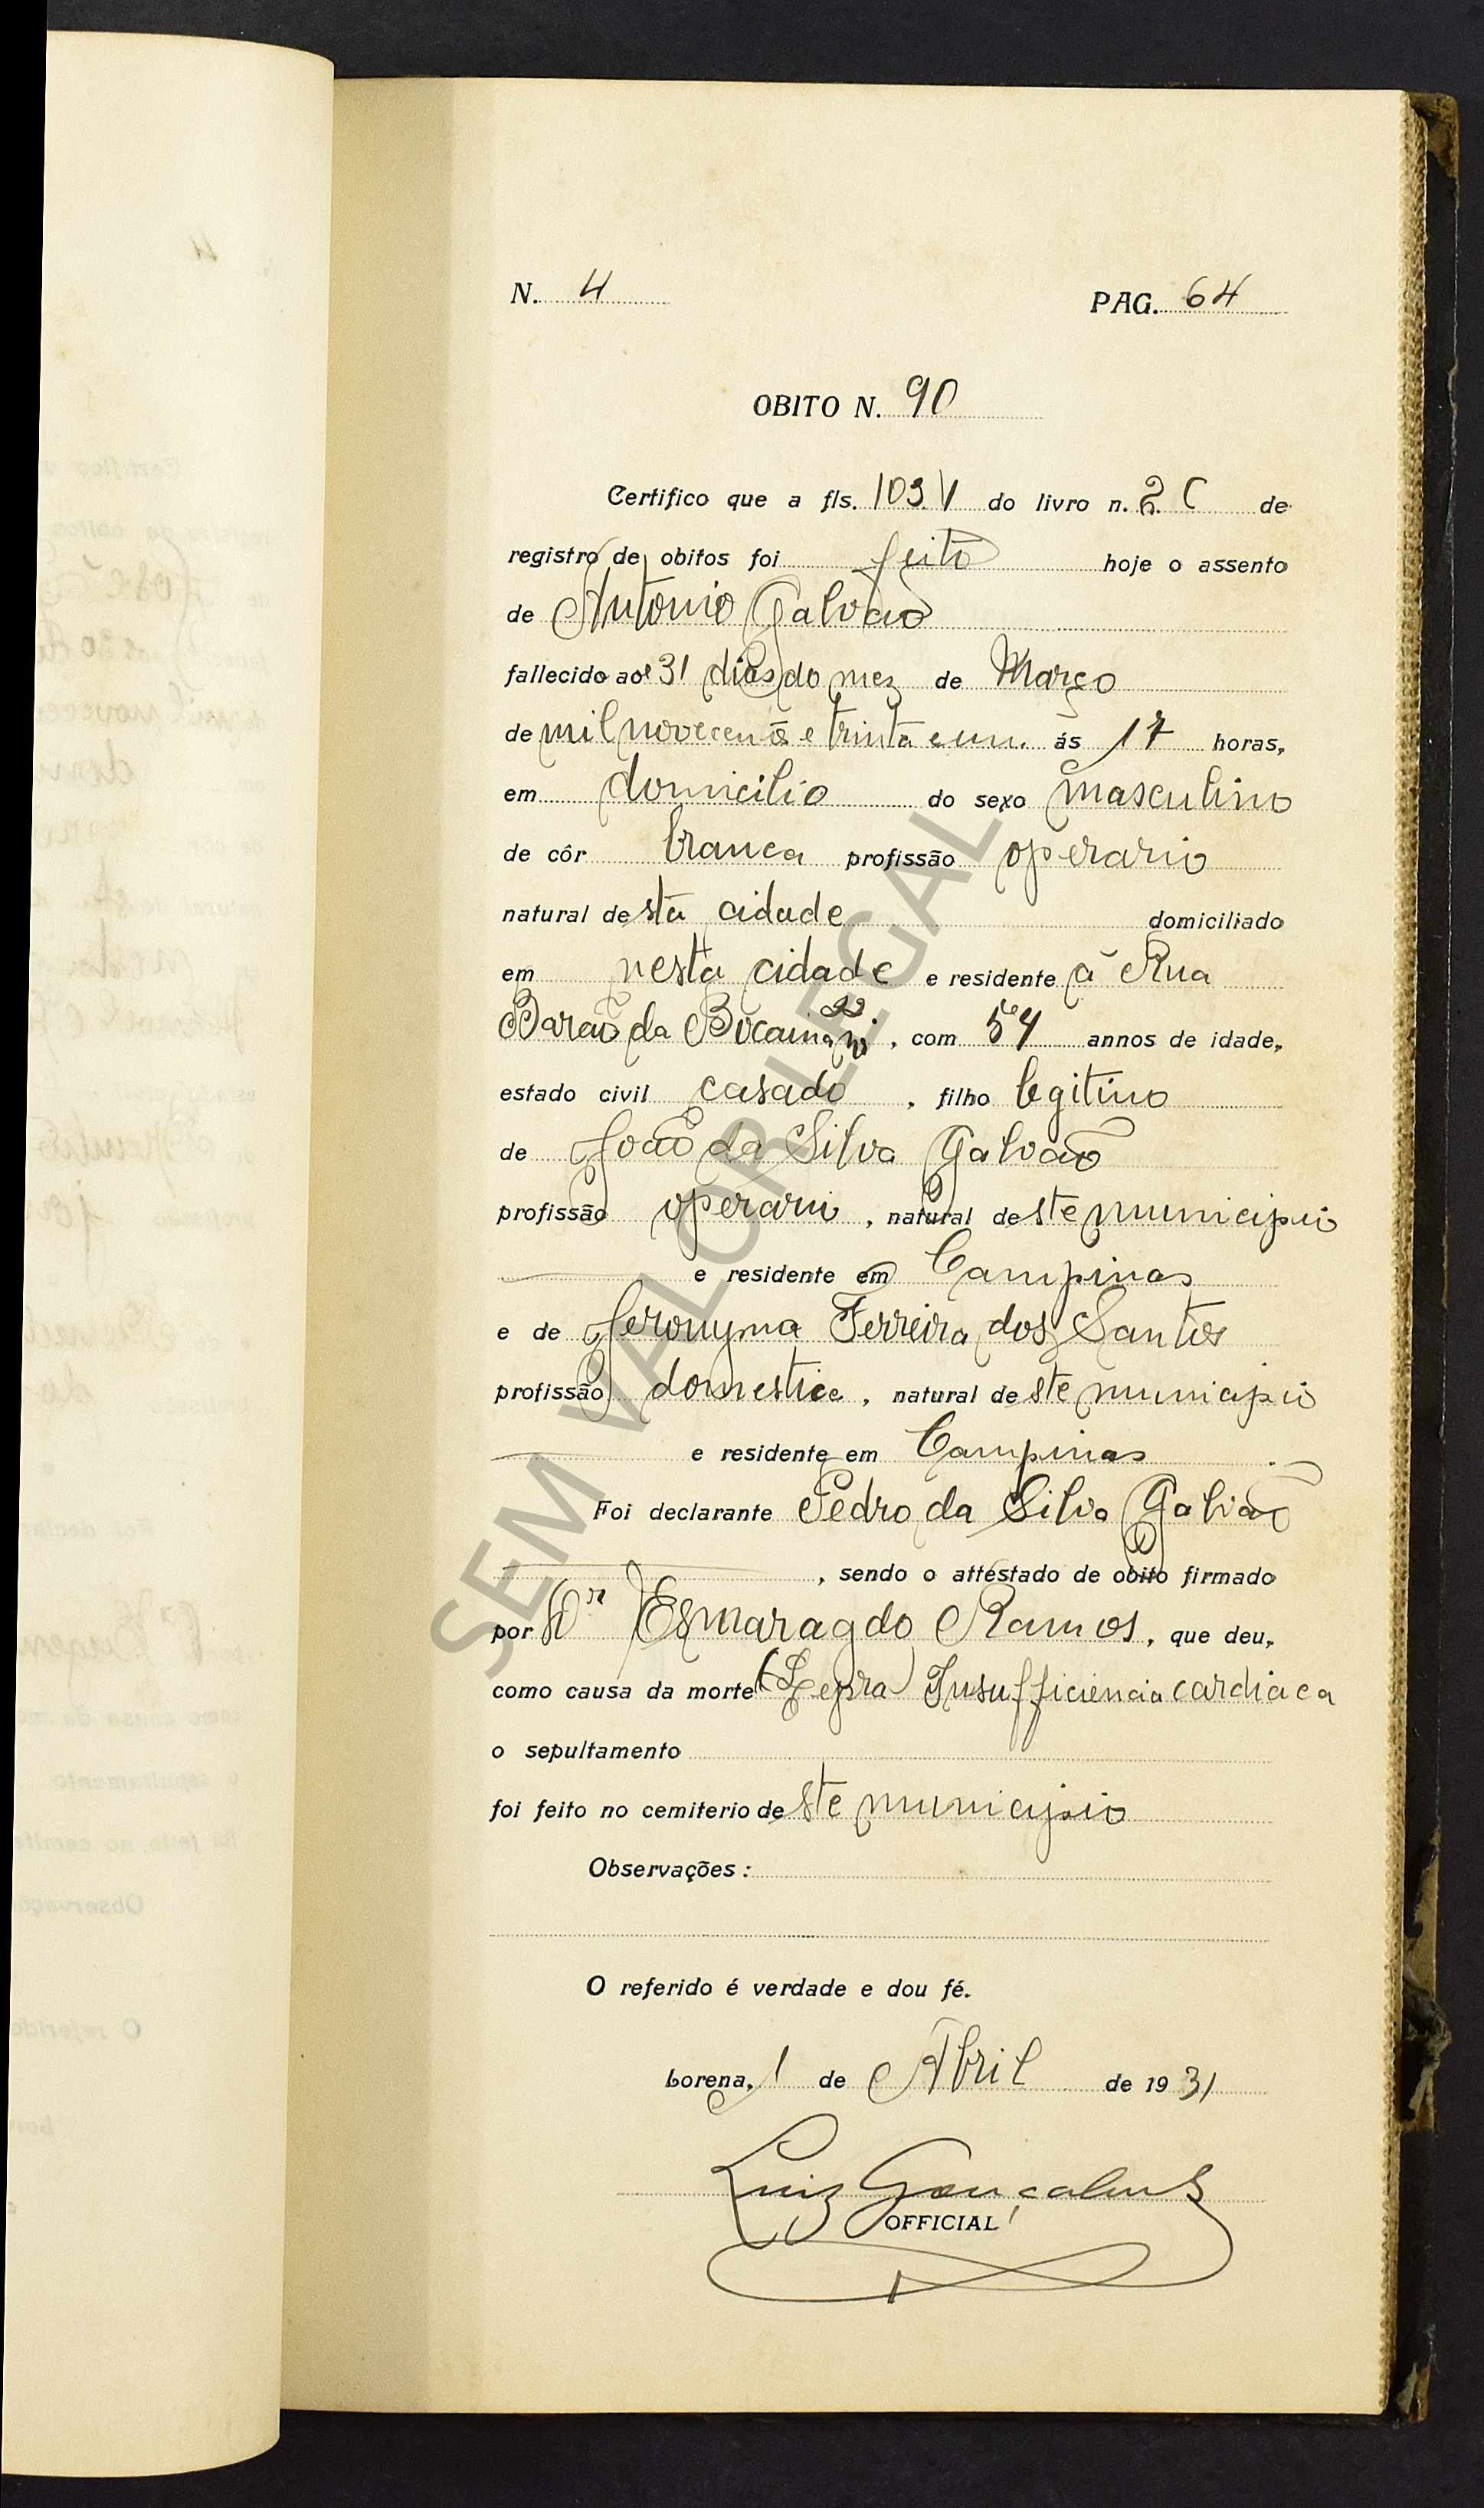 N. 4 PAG. 64
OBITO N. 90
Certifico que a fls. 103.V do livro n. 2 C de
registro de obitos foi feito hoje o assento
de Antonio Galvão
fallecido aos 31 dias do mez de Março
de mil novecentos e trinta e um. ás 17 horas,
em domicilio do sexo masculino
de côr branca profissão operario
natural desta cidade domiciliado
em nesta cidade e residente á Rua
Barão da Bocaina , com 54 annos de idade,
estado civil casado , filho legitimo
de João da Silva Galvão
profissão operario , natural deste municipio
e residente em Campinas
e de Jeronyma Ferreira dos Santos
profissão domestica , natural deste municipio
e residente em Campinas
Foi declarante Pedro da Silva Galvão
, sendo o attestado de obito firmado
por Dr Esmaragdo Ramos , que deu,
como causa da morte (Lepra) Insufficiencia cardiaca
o sepultamento
foi feito no cemiterio deste municipio
Observações :
O referido é verdade e dou fé.
Lorena, 1 de Abril de 1931
Luiz Gonçalves
OFFICIAL
SEM VALOR LEGAL